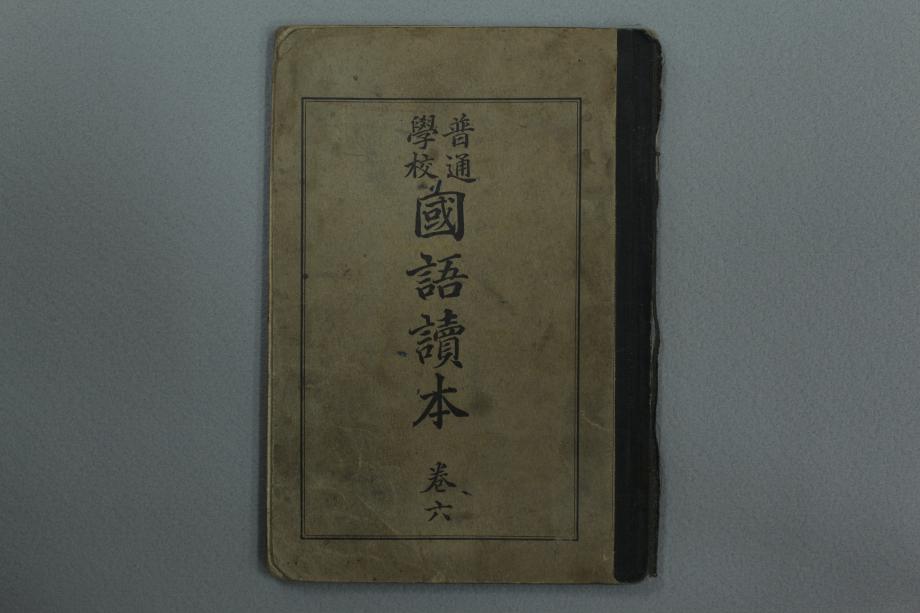 普通
學校
國語讀本
卷六